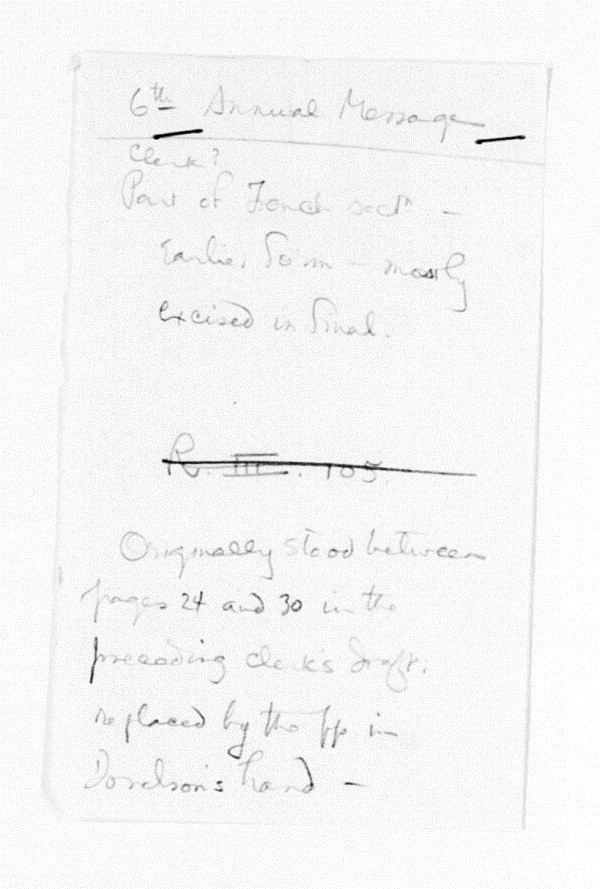 6th Annual Message
Clerk?
Part of French sectn —
Earlier form — mostly
excised in final.
R. III. 105.
Originally stood between
pages 24 and 30 in the
preceding clerk's draft.
replaced by the pp in
Donelson's hand —